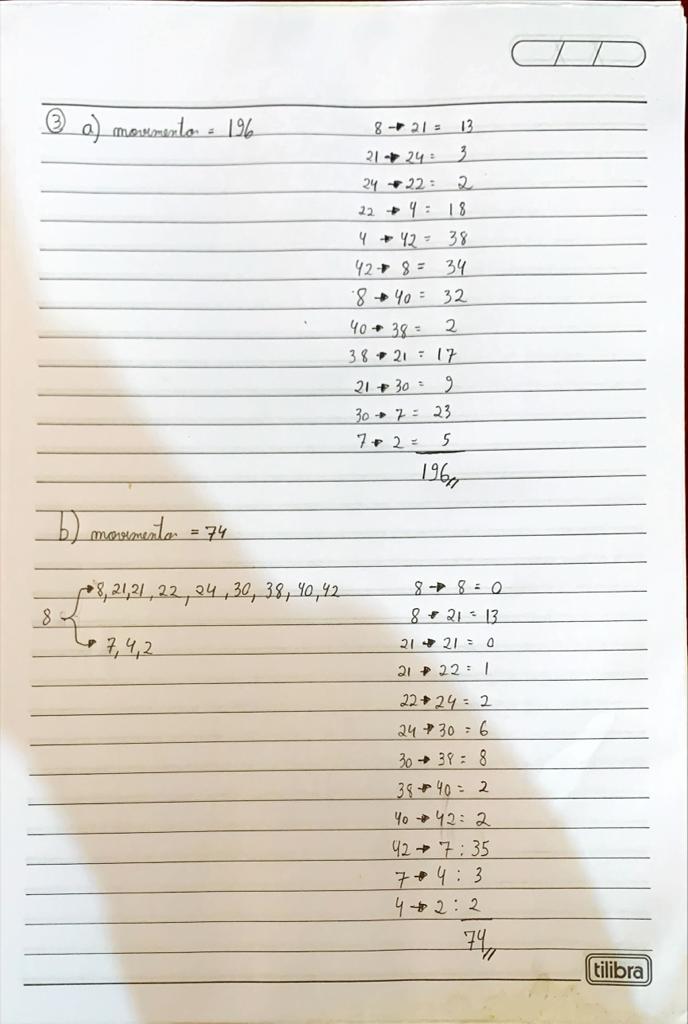 ③ a) movimento = 196
8 → 21 = 13
21 → 24 = 3
24 → 22 = 2
22 → 4 = 18
4 → 42 = 38
42 → 8 = 34
8 → 40 = 32
40 → 38 = 2
38 → 21 = 17
21 → 30 = 9
30 → 7 = 23
7 → 2 = 5
196
b) movimento = 74
8
8, 21, 21, 22, 24, 30, 38, 40, 42
7, 4, 2
8 → 8 = 0
8 → 21 = 13
21 → 21 = 0
21 → 22 = 1
22 → 24 = 2
24 → 30 = 6
30 → 38 = 8
38 → 40 = 2
40 → 42 = 2
42 → 7 : 35
7 → 4 : 3
4 → 2 : 2
74
tilibra